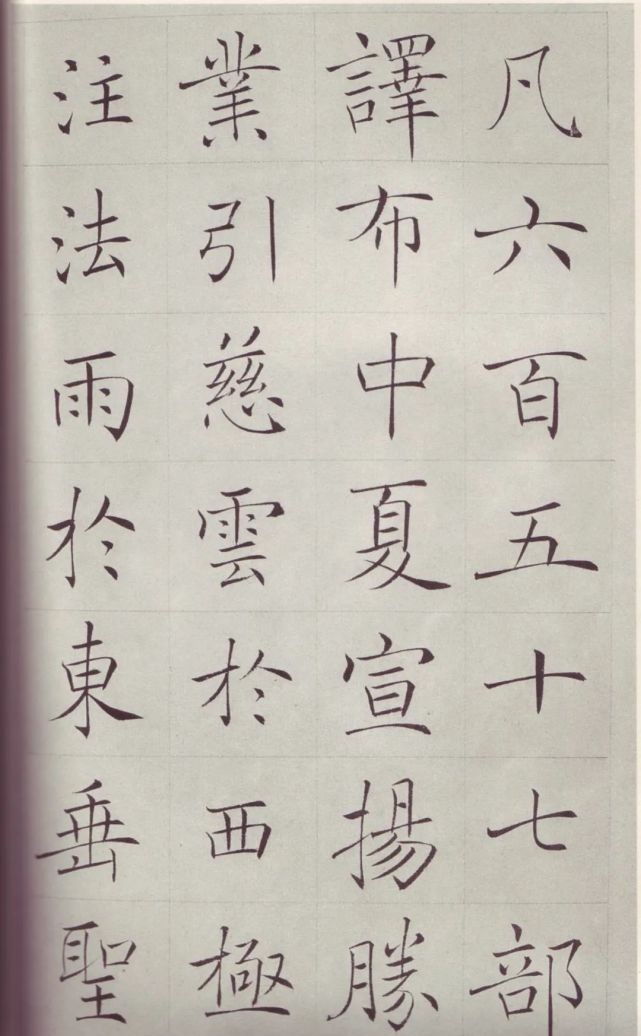 凡六百五十七部
譯布中夏宣揚勝
業引慈雲於西極
注法雨於東垂聖